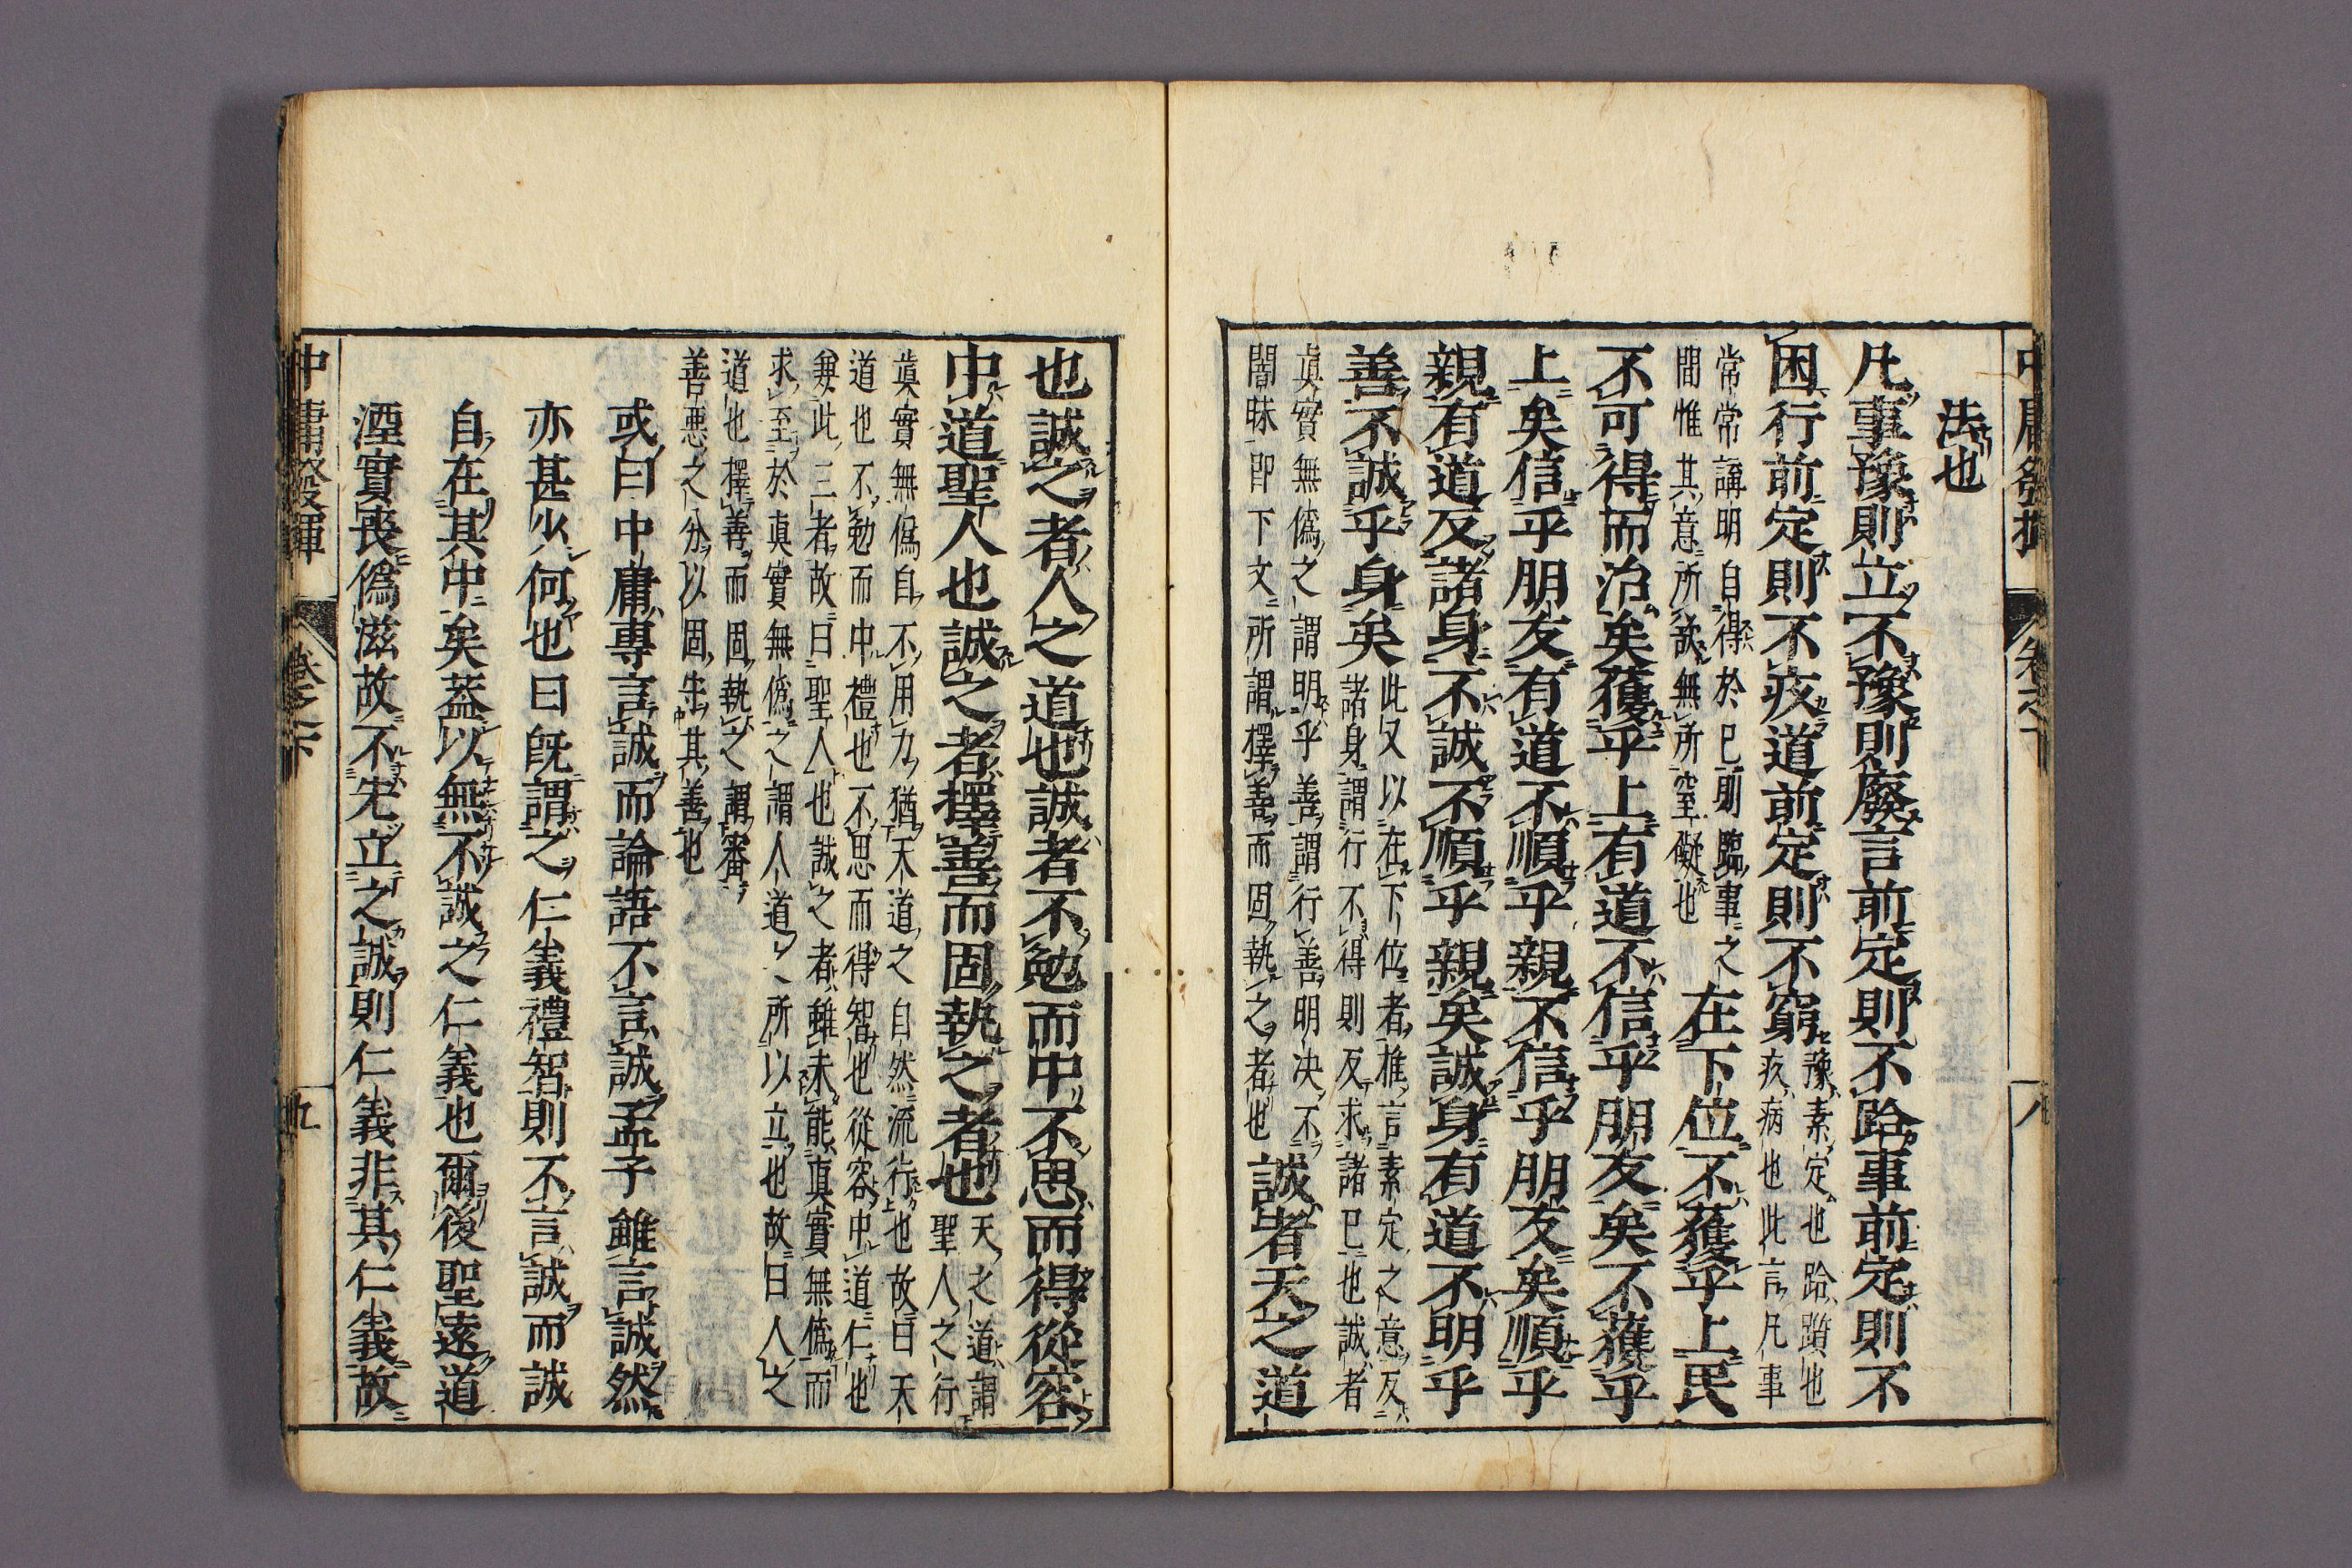 中庸發揮 卷之下 八
法也
凡事豫則立不豫則廢言前定則不跲事前定則不
困行前定則不疚道前定則不窮
豫素定也跲躓也
疚病也此言凡事
常常講明自得於已則臨事之
間惟其意所欲無所窒礙也
在下位不獲乎上民
不可得而治矣獲乎上有道不信乎朋友矣不獲乎
上矣信乎朋友有道不順乎親不信乎朋友矣順乎
親有道反諸身不誠不順乎親矣誠身有道不明乎
善不誠乎身矣
此又以在下位者推言素定之意反
諸身謂行不得則反求諸已也誠者
眞實無僞之謂明乎善謂行善明决不
闇昧即下文所謂擇善而固執之者也
誠者天之道
也誠之者人之道也誠者不勉而中不思而得從容
中道聖人也誠之者擇善而固執之者也
天之道謂
聖人之行
眞實無僞自不用力猶天道之自然流行也故曰天
道也不勉而中禮也不思而得智也從容中道仁也
兼此三者故曰聖人也誠之者雖未能眞實無僞而
求至於眞實無僞之謂人道丶所以立也故曰人之
道也擇善而固執之謂審
善惡之分以固守其善也
或曰中庸專言誠而論語不言誠孟子雖言誠然
亦甚少何也曰旣謂之仁義禮智則不言誠而誠
自在其中矣蓋以無不誠之仁義也爾後聖遠道
湮實喪僞滋故不先立之誠則仁義非其仁義故
中庸發揮 卷之下 九